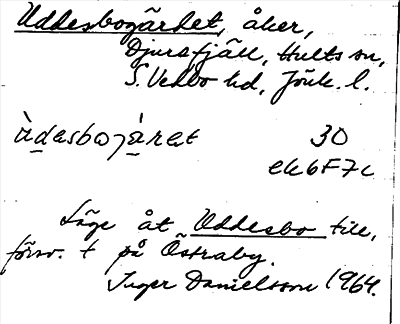 Uddesbogärdet, åker,
Djursfjäll, Hults sn,
S. Vedbo hd, Jönk. l.
ùdesbojàret 30
ek6F7c
Låge åt Uddesbo till,
försv. t på Östraby.
Inger Danielsson 1964.